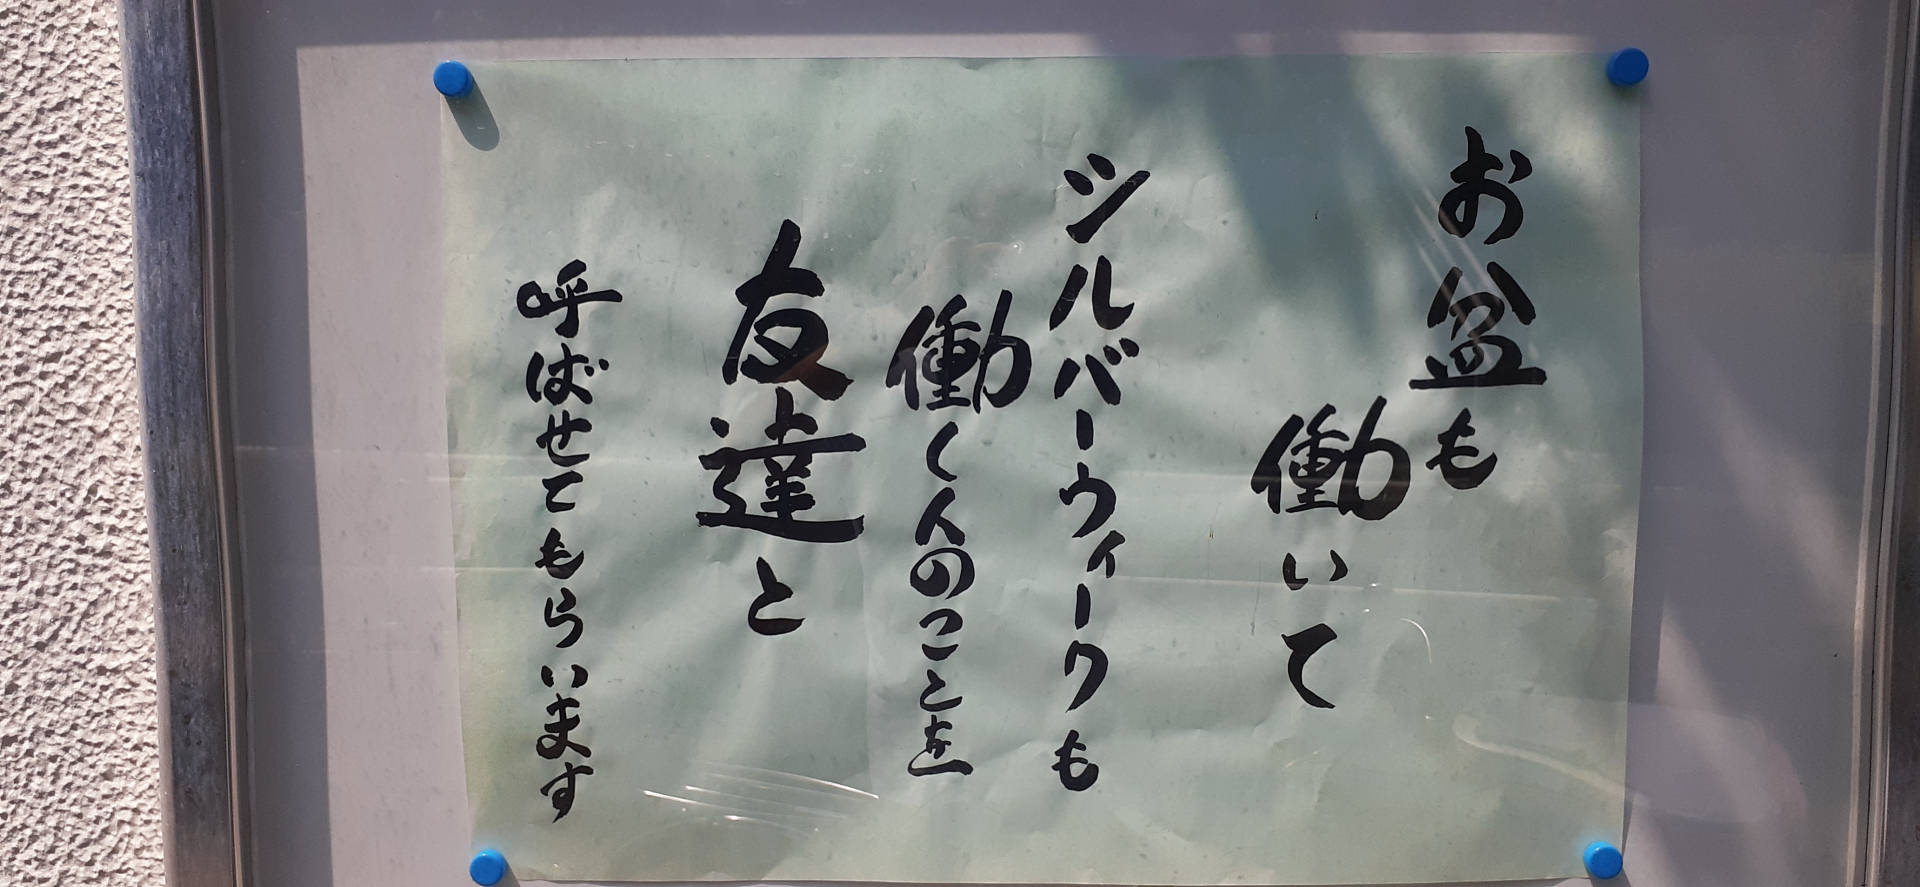 お盆も
働いて
シルバーウィークも
働く人のことを
友達と
呼ばせてもらいます